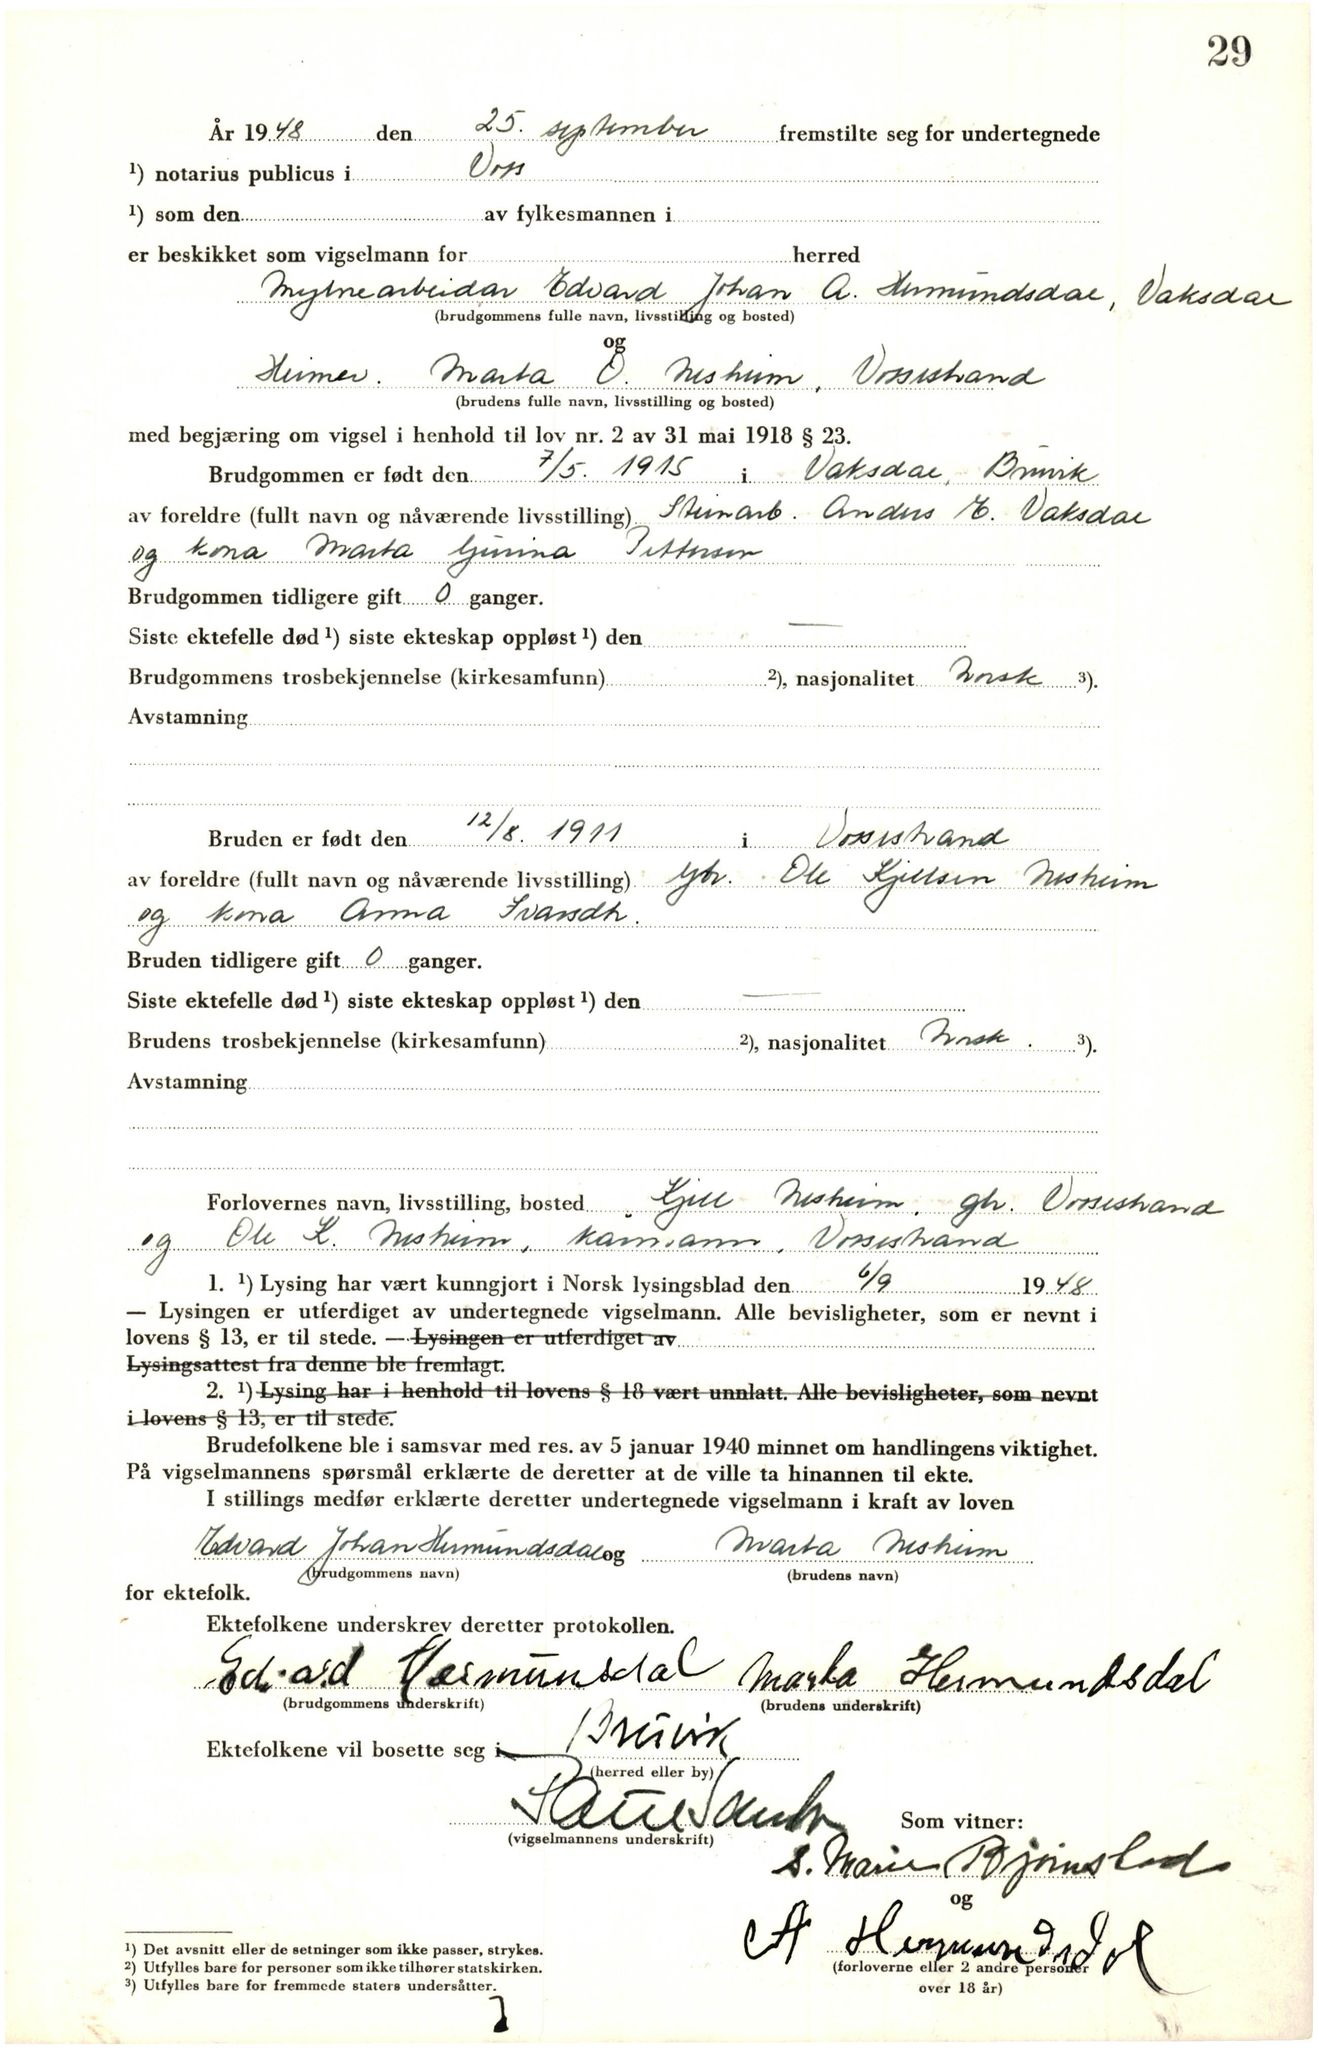 29
År 1948 den 25. september fremstilte seg for undertegnede
¹) notarius publicus i Voss
¹) som den av fylkesmannen i
er beskikket som vigselmann for herred
Mylnearbeidar Edvard Johan A. Hermundsdal, Vaksdal
(brudgommens fulle navn, livsstilling og bosted)
og
Heimev. Marta O. Nesheim, Vossestrand
(brudens fulle navn, livsstilling og bosted)
med begjæring om vigsel i henhold til lov nr. 2 av 31 mai 1918 § 23.
Brudgommen er født den 7/5. 1915 i Vaksdal, Bruvik
av foreldre (fullt navn og nåværende livsstilling) Steinarb. Anders E. Vaksdal
og kona Marta Gurina Pettersen
Brudgommen tidligere gift 0 ganger.
Siste ektefelle død ¹) siste ekteskap oppløst ¹) den —
Brudgommens trosbekjennelse (kirkesamfunn) ²), nasjonalitet Norsk ³).
Avstamning
Bruden er født den 12/8. 1911 i Vossestrand
av foreldre (fullt navn og nåværende livsstilling) Gbr. Ole Kjellsen Nesheim
og kona Anna Ivarsdtr.
Bruden tidligere gift 0 ganger.
Siste ektefelle død ¹) siste ekteskap oppløst ¹) den —
Brudens trosbekjennelse (kirkesamfunn) ²), nasjonalitet Norsk. ³).
Avstamning
Forlovernes navn, livsstilling, bosted Kjell Nesheim, gbr. Vossestrand
og Ole K. Nesheim, kårmann, Vossestrand
1. ¹) Lysing har vært kunngjort i Norsk lysingsblad den 6/9 1948
— Lysingen er utferdiget av undertegnede vigselmann. Alle bevisligheter, som er nevnt i
lovens § 13, er til stede. — Lysingen er utferdiget av
Lysingsattest fra denne ble fremlagt.
2. ¹) Lysing har i henhold til lovens § 18 vært unnlatt. Alle bevisligheter, som nevnt
i lovens § 13, er til stede.
Brudefolkene ble i samsvar med res. av 5 januar 1940 minnet om handlingens viktighet.
På vigselmannens spørsmål erklærte de deretter at de ville ta hinannen til ekte.
I stillings medfør erklærte deretter undertegnede vigselmann i kraft av loven
Edvard Johan Hermundsdal og Marta Nesheim
(brudgommens navn) (brudens navn)
for ektefolk.
Ektefolkene underskrev deretter protokollen.
Edvard Hermunsdal Marta Hermundsdal
(brudgommens underskrift) (brudens underskrift)
Ektefolkene vil bosette seg i Bruvik
(herred eller by)
Som vitner:
(vigselmannens underskrift)
S. Marie Bjørnstad
og
A Hermundsdal
(forloverne eller 2 andre personer
over 18 år)
¹) Det avsnitt eller de setninger som ikke passer, strykes.
²) Utfylles bare for personer som ikke tilhører statskirken.
³) Utfylles bare for fremmede staters undersåtter.